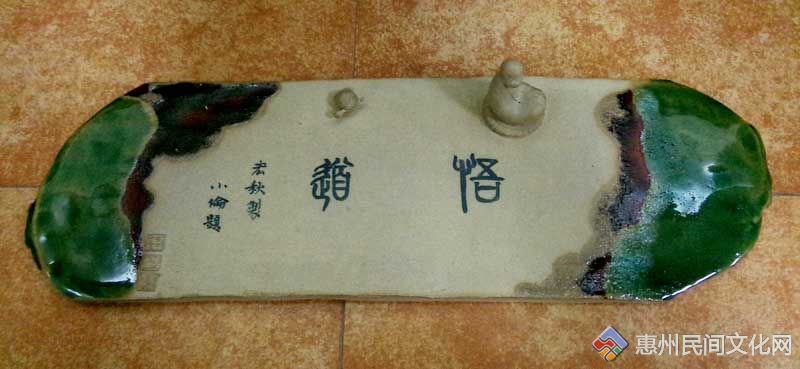 悟道
宏秋製
小倫題
惠州民间文化网